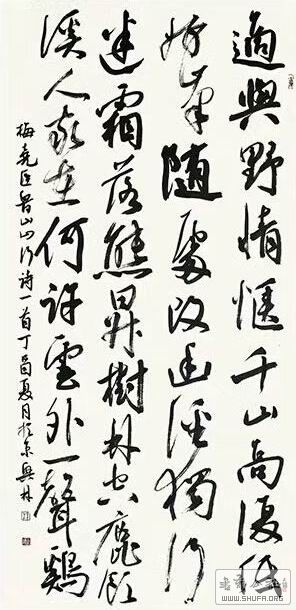 適與野情愜千山高復低
好峯隨處改幽徑獨行
迷霜落熊昇樹林空鹿飲
溪人家在何許雲外一聲鷄
梅堯臣魯山山行诗一首丁酉夏月於京興林
WWW.SHUFA.ORG